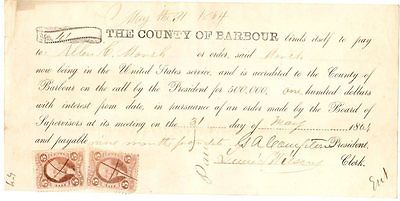 May 31 1864
THE COUNTY OF BARBOUR binds itself to pay
to Allen H. or order, said
now being in the United States service, and is accredited to the County of
Barbour on the call by the President for 500,000, one hundred dollars
with interest from date, in pursuance of an order made by the Board of
Supervisors at its meeting on the 31 day of May 1864
and payable nine months from date President,
Lewis Wilson Clerk.